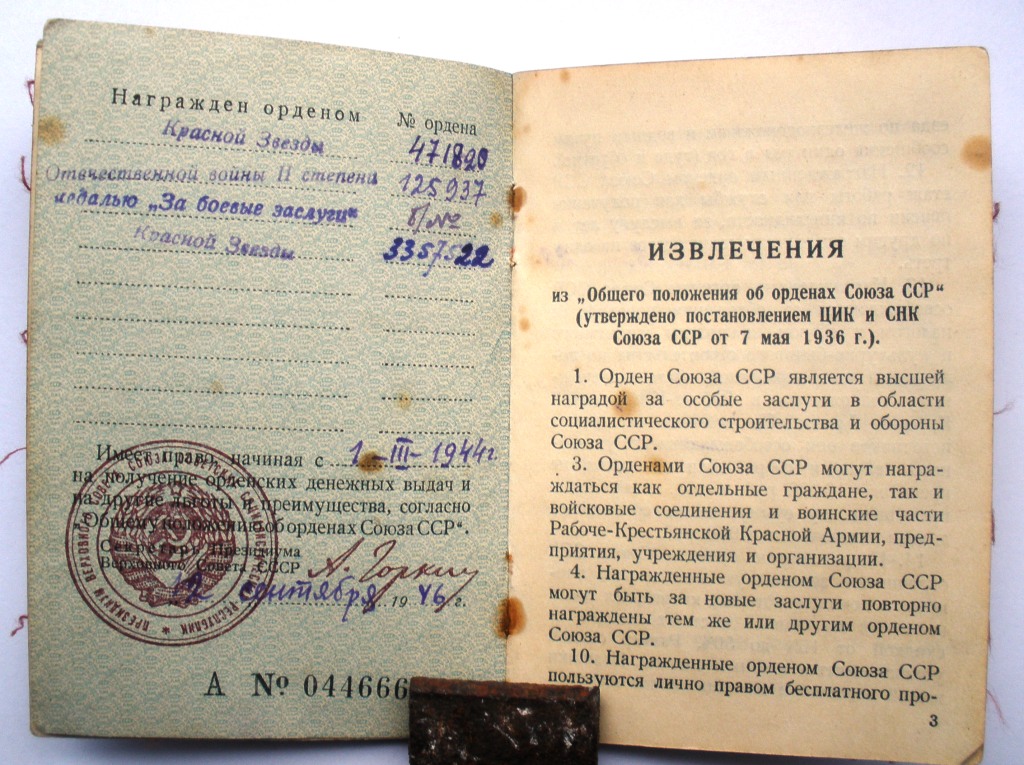 Награжден орденом № ордена
Красной Звезды 471820
Отечественной войны II степени 125937
медалью „За боевые заслуги“ б/№
Красной Звезды 3357522
Имеет право, начиная с 1-III-1944г
на получение орденских денежных выдач и
на другие льготы и преимущества, согласно
„Общему положению об орденах Союза ССР“.
Секретарь Президиума
Верховного Совета СССР А. Горкин
12 сентября 1946 г.
А № 044666
ИЗВЛЕЧЕНИЯ
из „Общего положения об орденах Союза ССР“
(утверждено постановлением ЦИК и СНК
Союза ССР от 7 мая 1936 г.).
1. Орден Союза ССР является высшей
наградой за особые заслуги в области
социалистического строительства и обороны
Союза ССР.
3. Орденами Союза ССР могут награ-
ждаться как отдельные граждане, так и
войсковые соединения и воинские части
Рабоче-Крестьянской Красной Армии, пред-
приятия, учреждения и организации.
4. Награжденные орденом Союза ССР
могут быть за новые заслуги повторно
награждены тем же или другим орденом
Союза ССР.
10. Награжденные орденом Союза ССР
пользуются лично правом бесплатного про-
3